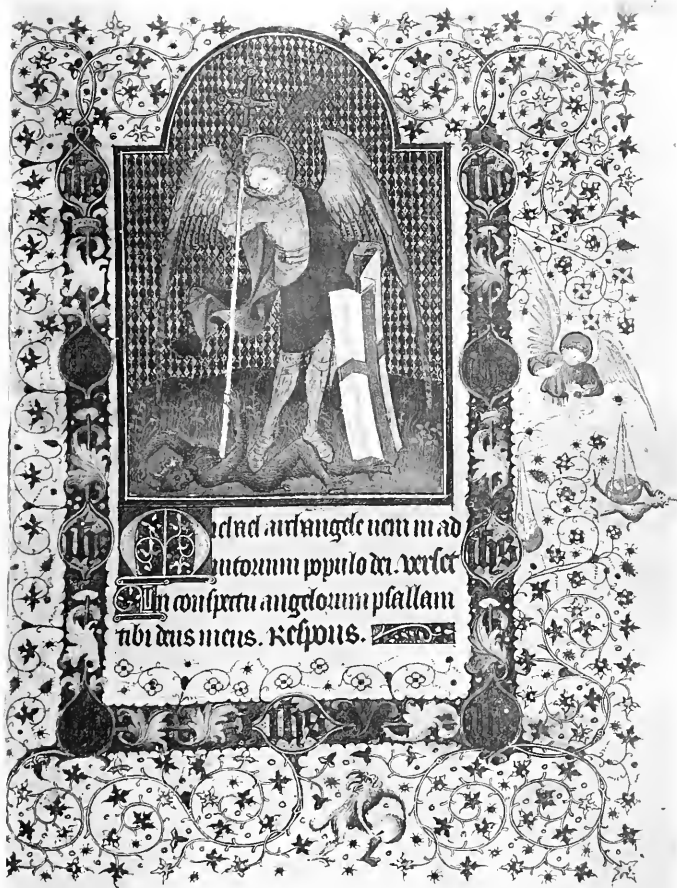 ihs ihs
Michael archangele ueni in ad
ihs ihs
iutorium populo dei. verset
In conspectu angelorum psallam
tibi deus meus. Respons.
ihs ihs